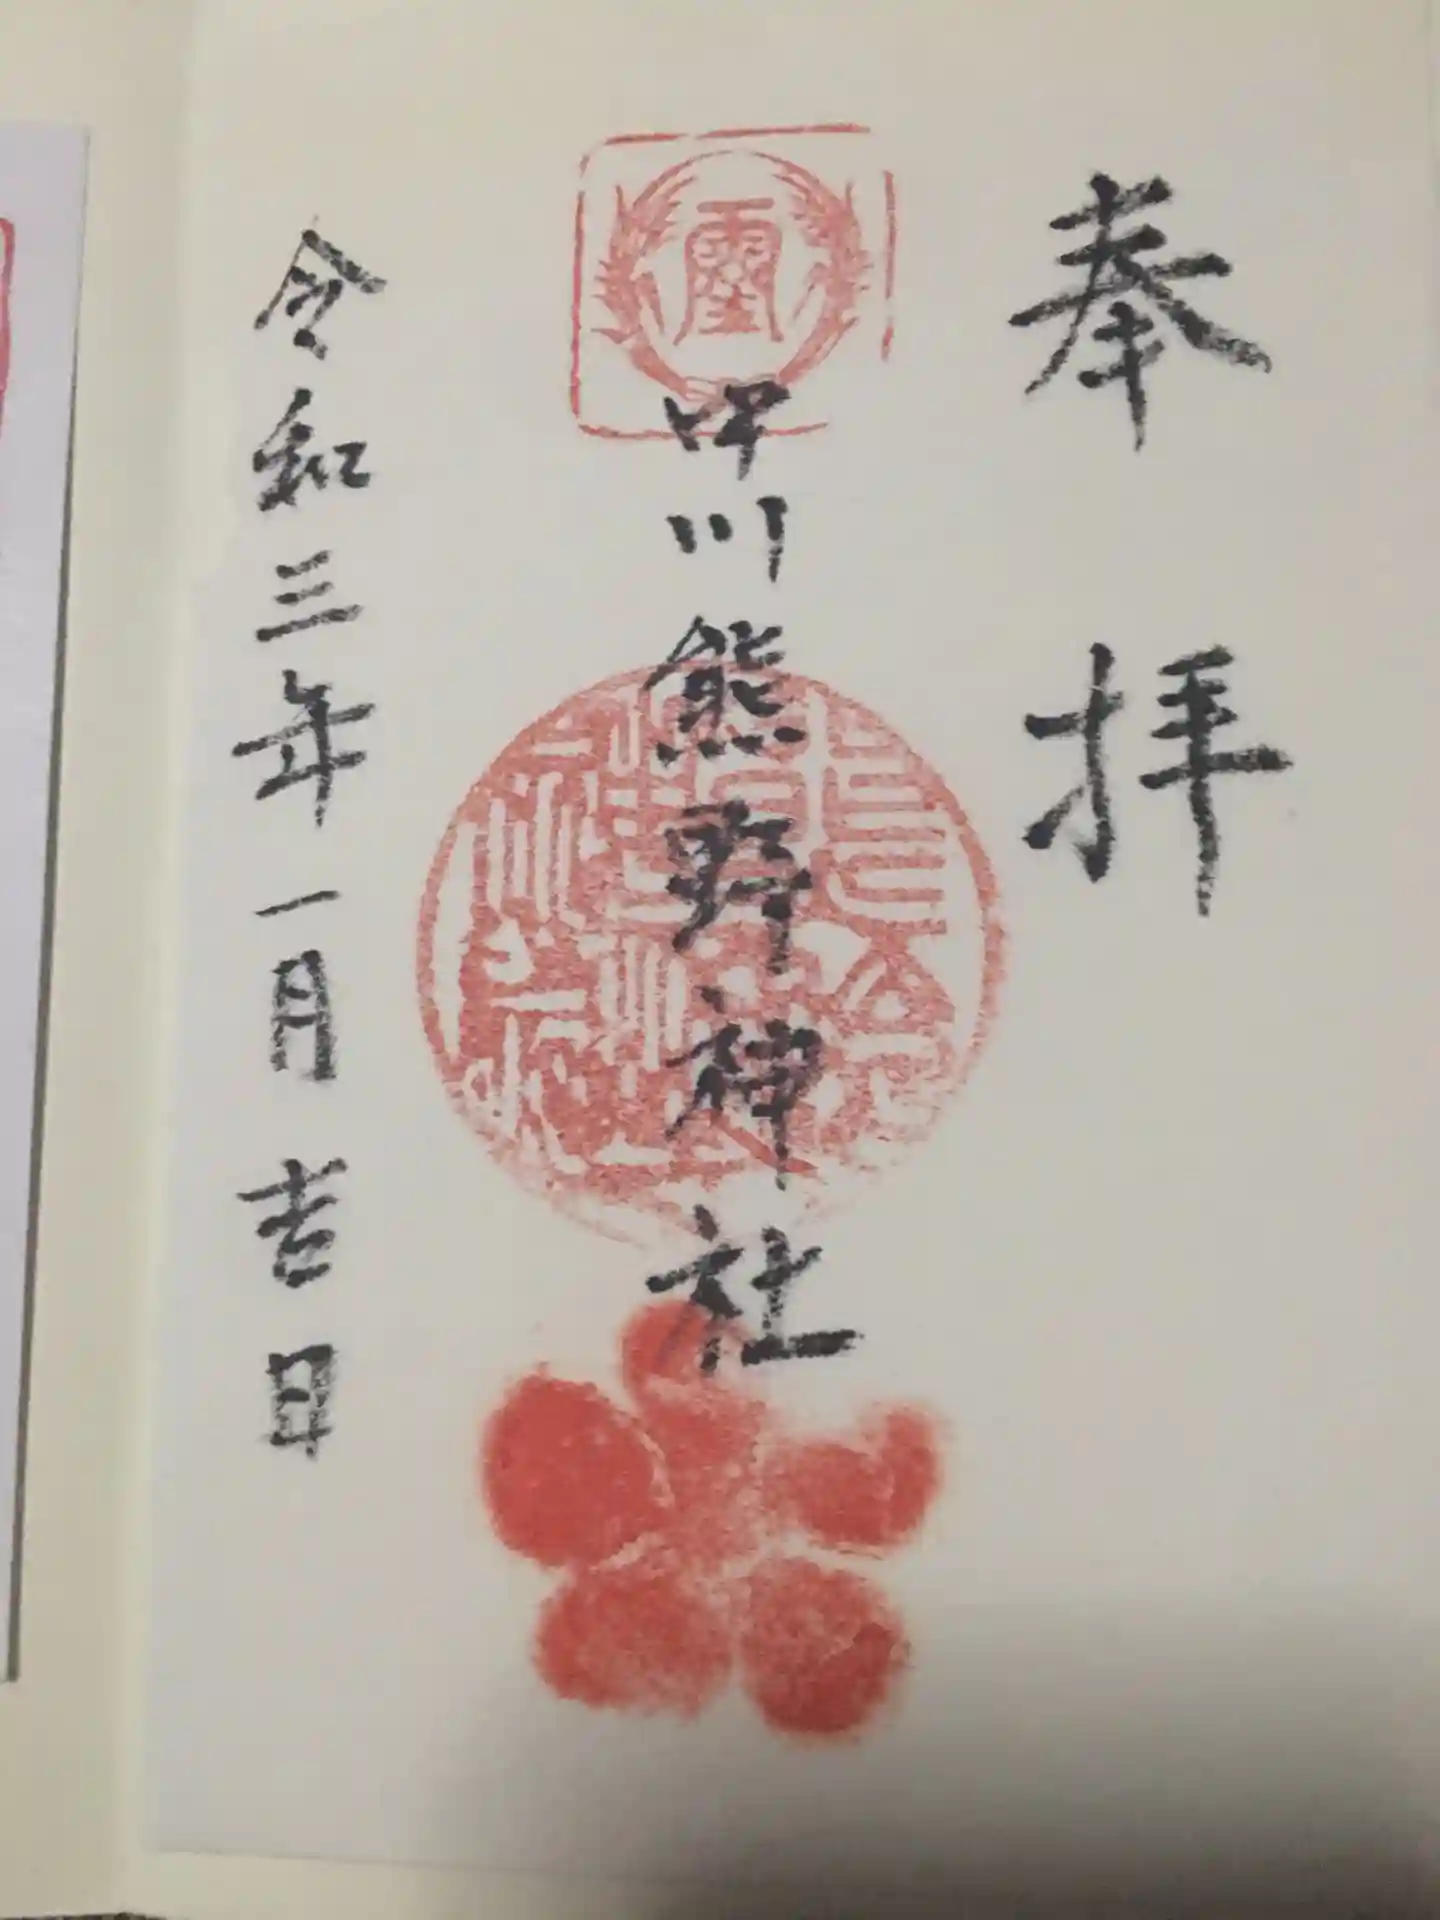 奉拝
川熊野神社
令和三年一月吉日